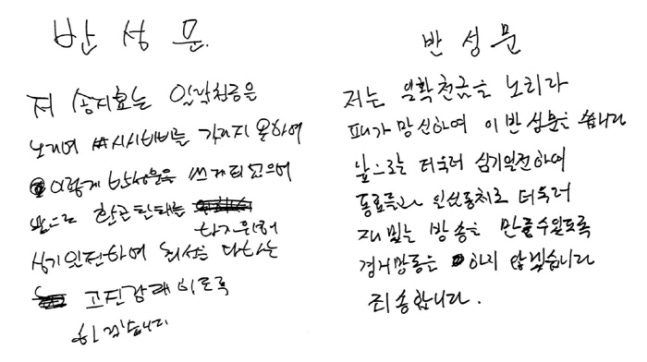 반성문.
저 송지효는 일확천금은
노리며 시시비비를 가리지 못하여
이렇게 반성문을 쓰게 되었으며
앞으로 한골탄태를
하기 위해
심기일전하여 최선을 다하는
고진감래 이도록
하겠습니다
반성문
저는 일확천금을 노리다
패가망신하여 이 반성문을 씁니다
앞으로는 더욱더 심기일전하여
동료들과 일심동체로 더욱더
재밌는 방송을 만들 수 있도록
경거망동은 하지 않겠습니다
죄송합니다.